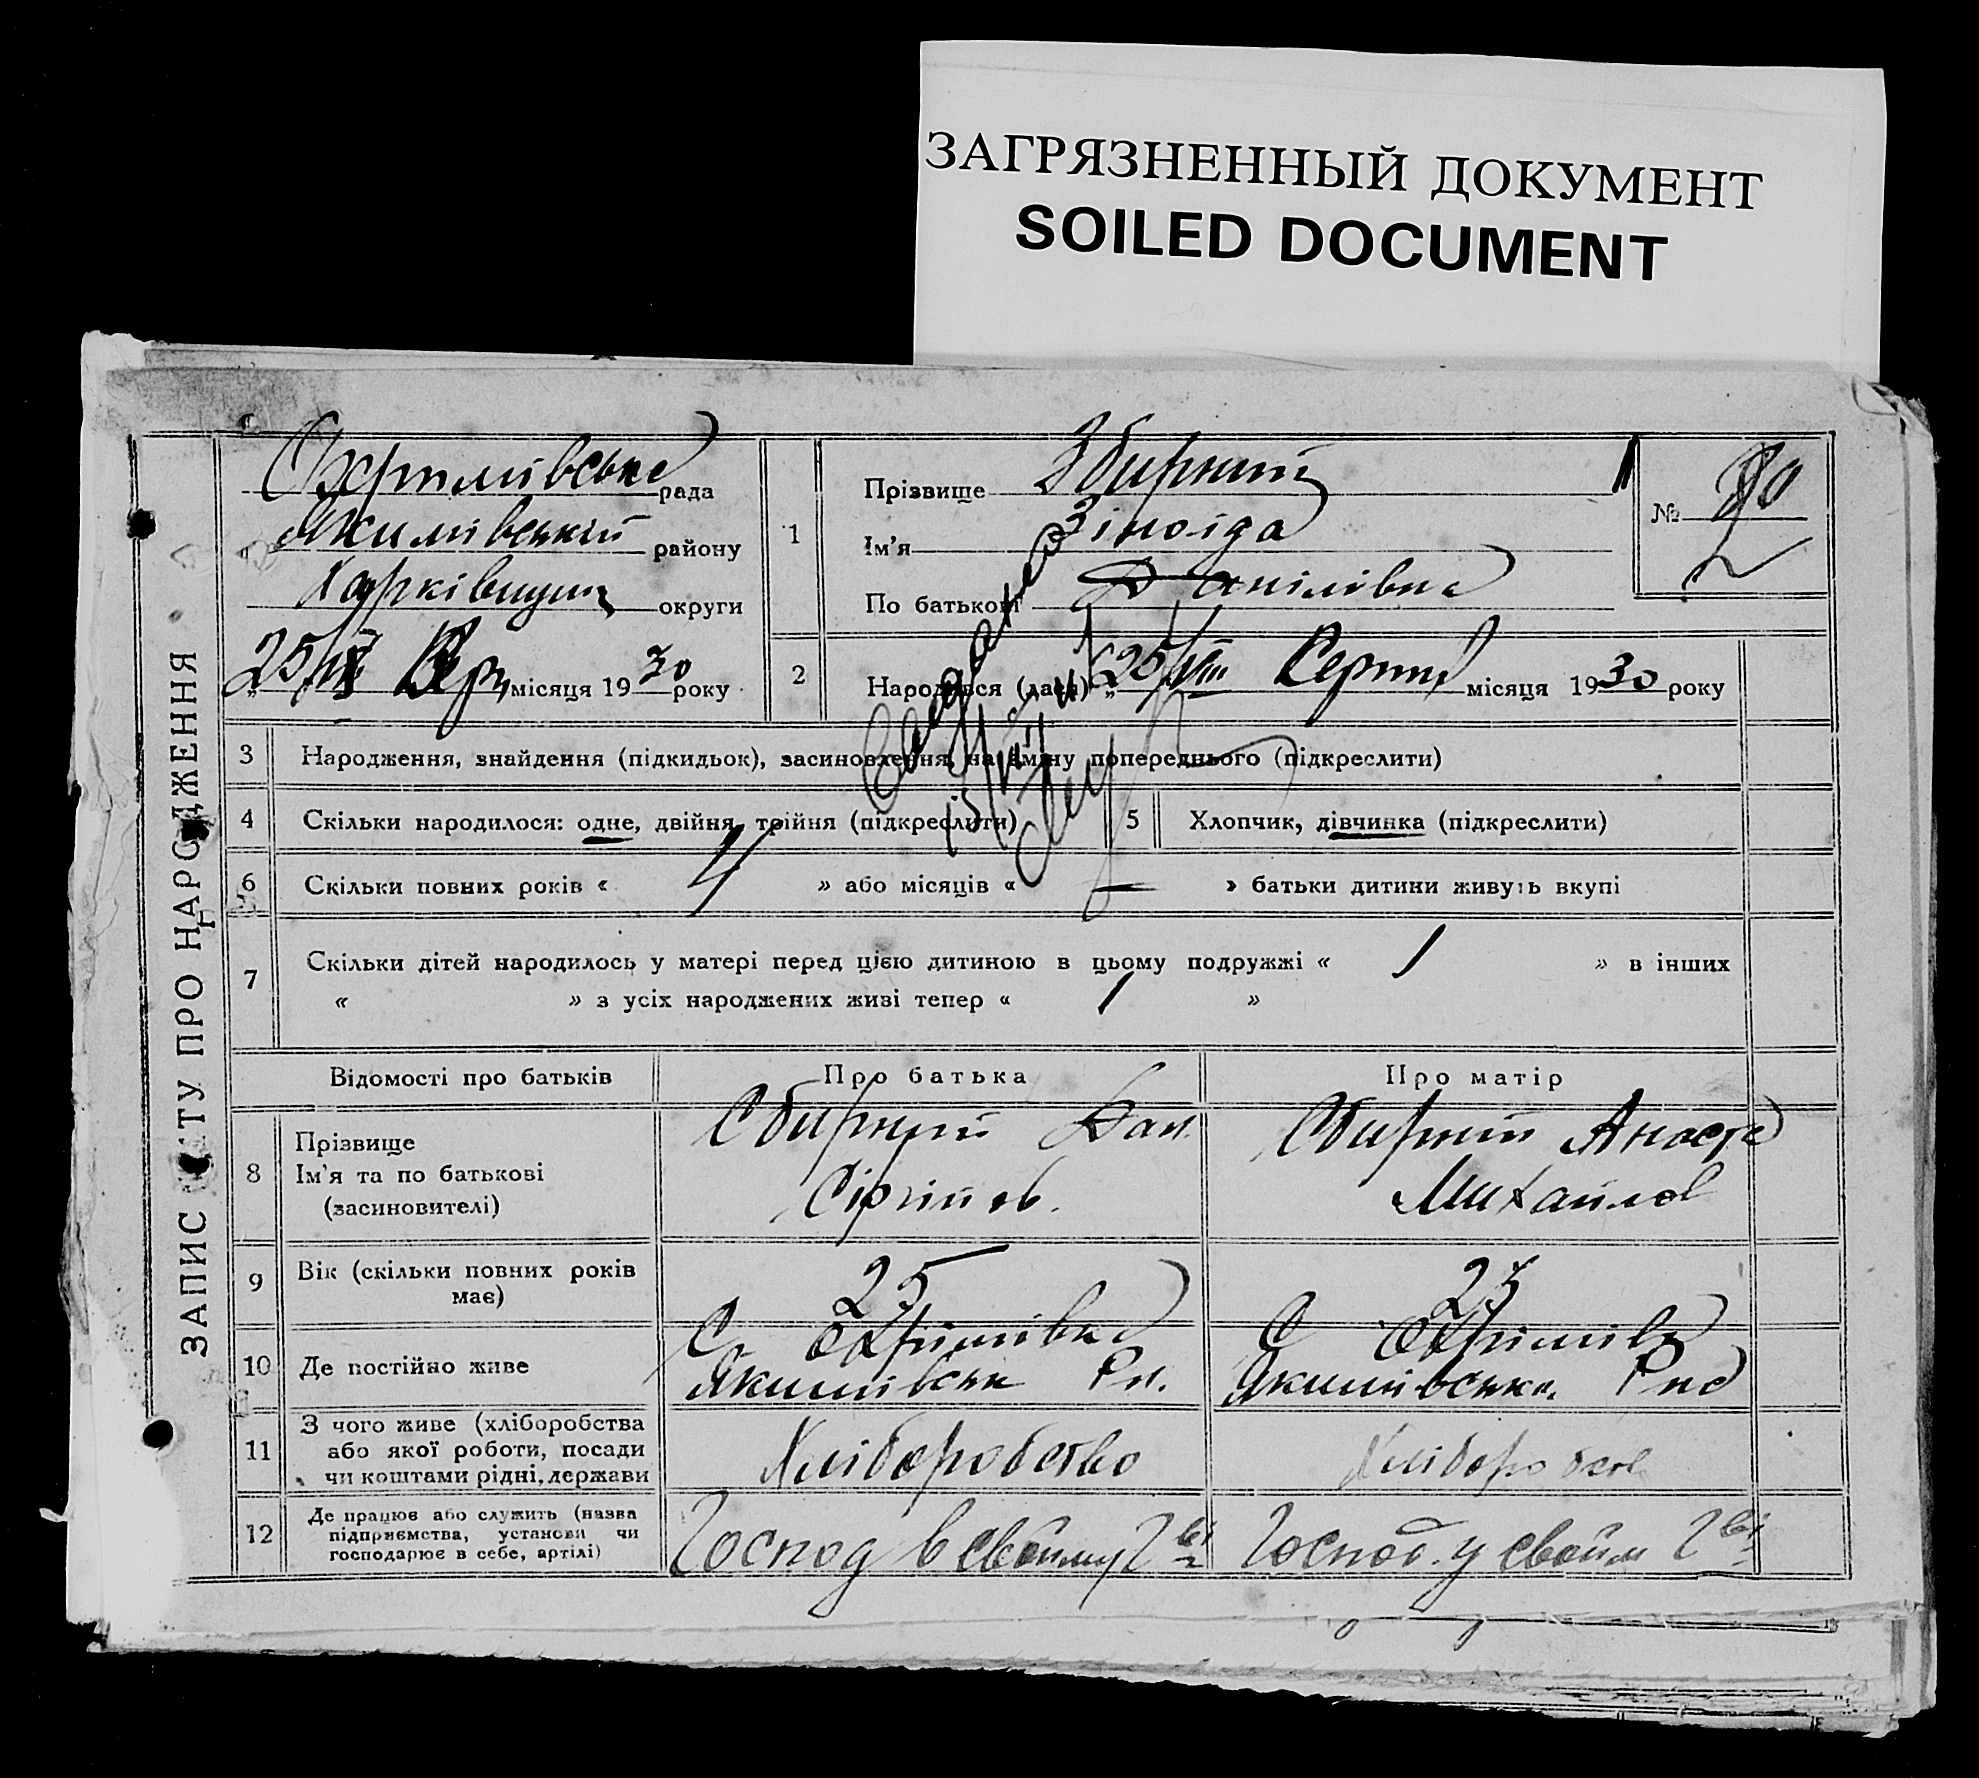 ЗАГРЯЗНЕННЫЙ ДОКУМЕНТ
SOILED DOCUMENT
ЗАПИС АКТУ ПРО НАРОДЖЕННЯ
Охрімівська рада
Якимівський району
округи
25/ІХ Вер. місяця 1930 року
1
Прізвище Збирний
Ім'я Зіноіда
По батькові Данілівна
№ 80
2
Народився (лася) „25/VIII Серпня місяця 1930 року
3 Народження, знайдення (підкидьок), засиновлення, на зміну попереднього (підкреслити)
4 Скільки народилося: одне, двійня, трійня (підкреслити) 5 Хлопчик, дівчинка (підкреслити)
6 Скільки повних років « 4 » або місяців « — » батьки дитини живуть вкупі
7 Скільки дітей народилось у матері перед цією дитиною в цьому подружжі « 1 » в інших
« » з усіх народжених живі тепер « 1 »
Відомості про батьків Про батька Про матір
8 Прізвище
Ім'я та по батькові
(засиновителі)
Сбирний Дан.
Сіргійов.
Сбирній Анаст
Михайлов
9 Вік (скільки повних років має) 25 25
10 Де постійно живе
С. Охрімівка
Якимівськ Рн.
С Охрімівка
Якимівська. Рна
11 З чого живе (хліборобства
або якої роботи, посади
чи коштами рідні, держави
Хліборобство
Хліборобств
12 Де працює або служить (назва
підприємства, установи чи
господарює в себе, артілі)
Господ в свойму Гві
Господ. у свойм Гві